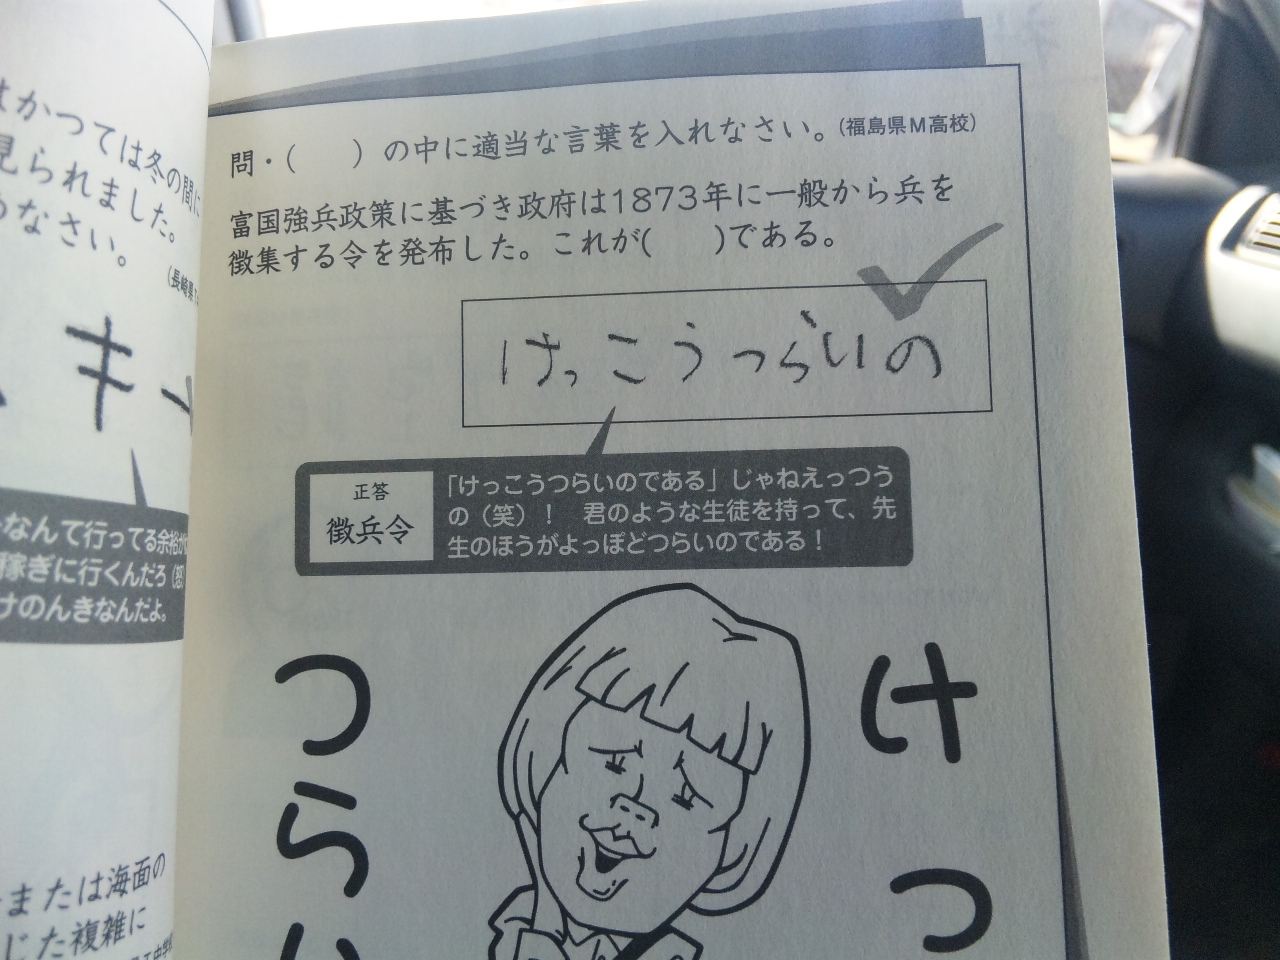 問・(　　)の中に適当な言葉を入れなさい。(福島県M高校)
富国強兵政策に基づき政府は1873年に一般から兵を
徴集する令を発布した。これが(　　)である。
けっこうつらいの
正答
徴兵令
「けっこうつらいのである」じゃねえっつう
の（笑）！　君のような生徒を持って、先
生のほうがよっぽどつらいのである！
けっ
つらい
はかつては冬の間に
見られました。
なさい。
キー
なんて行ってる余裕が
稼ぎに行くんだろ（怒）
けのんきなんだよ。
または海面の
じた複雑に